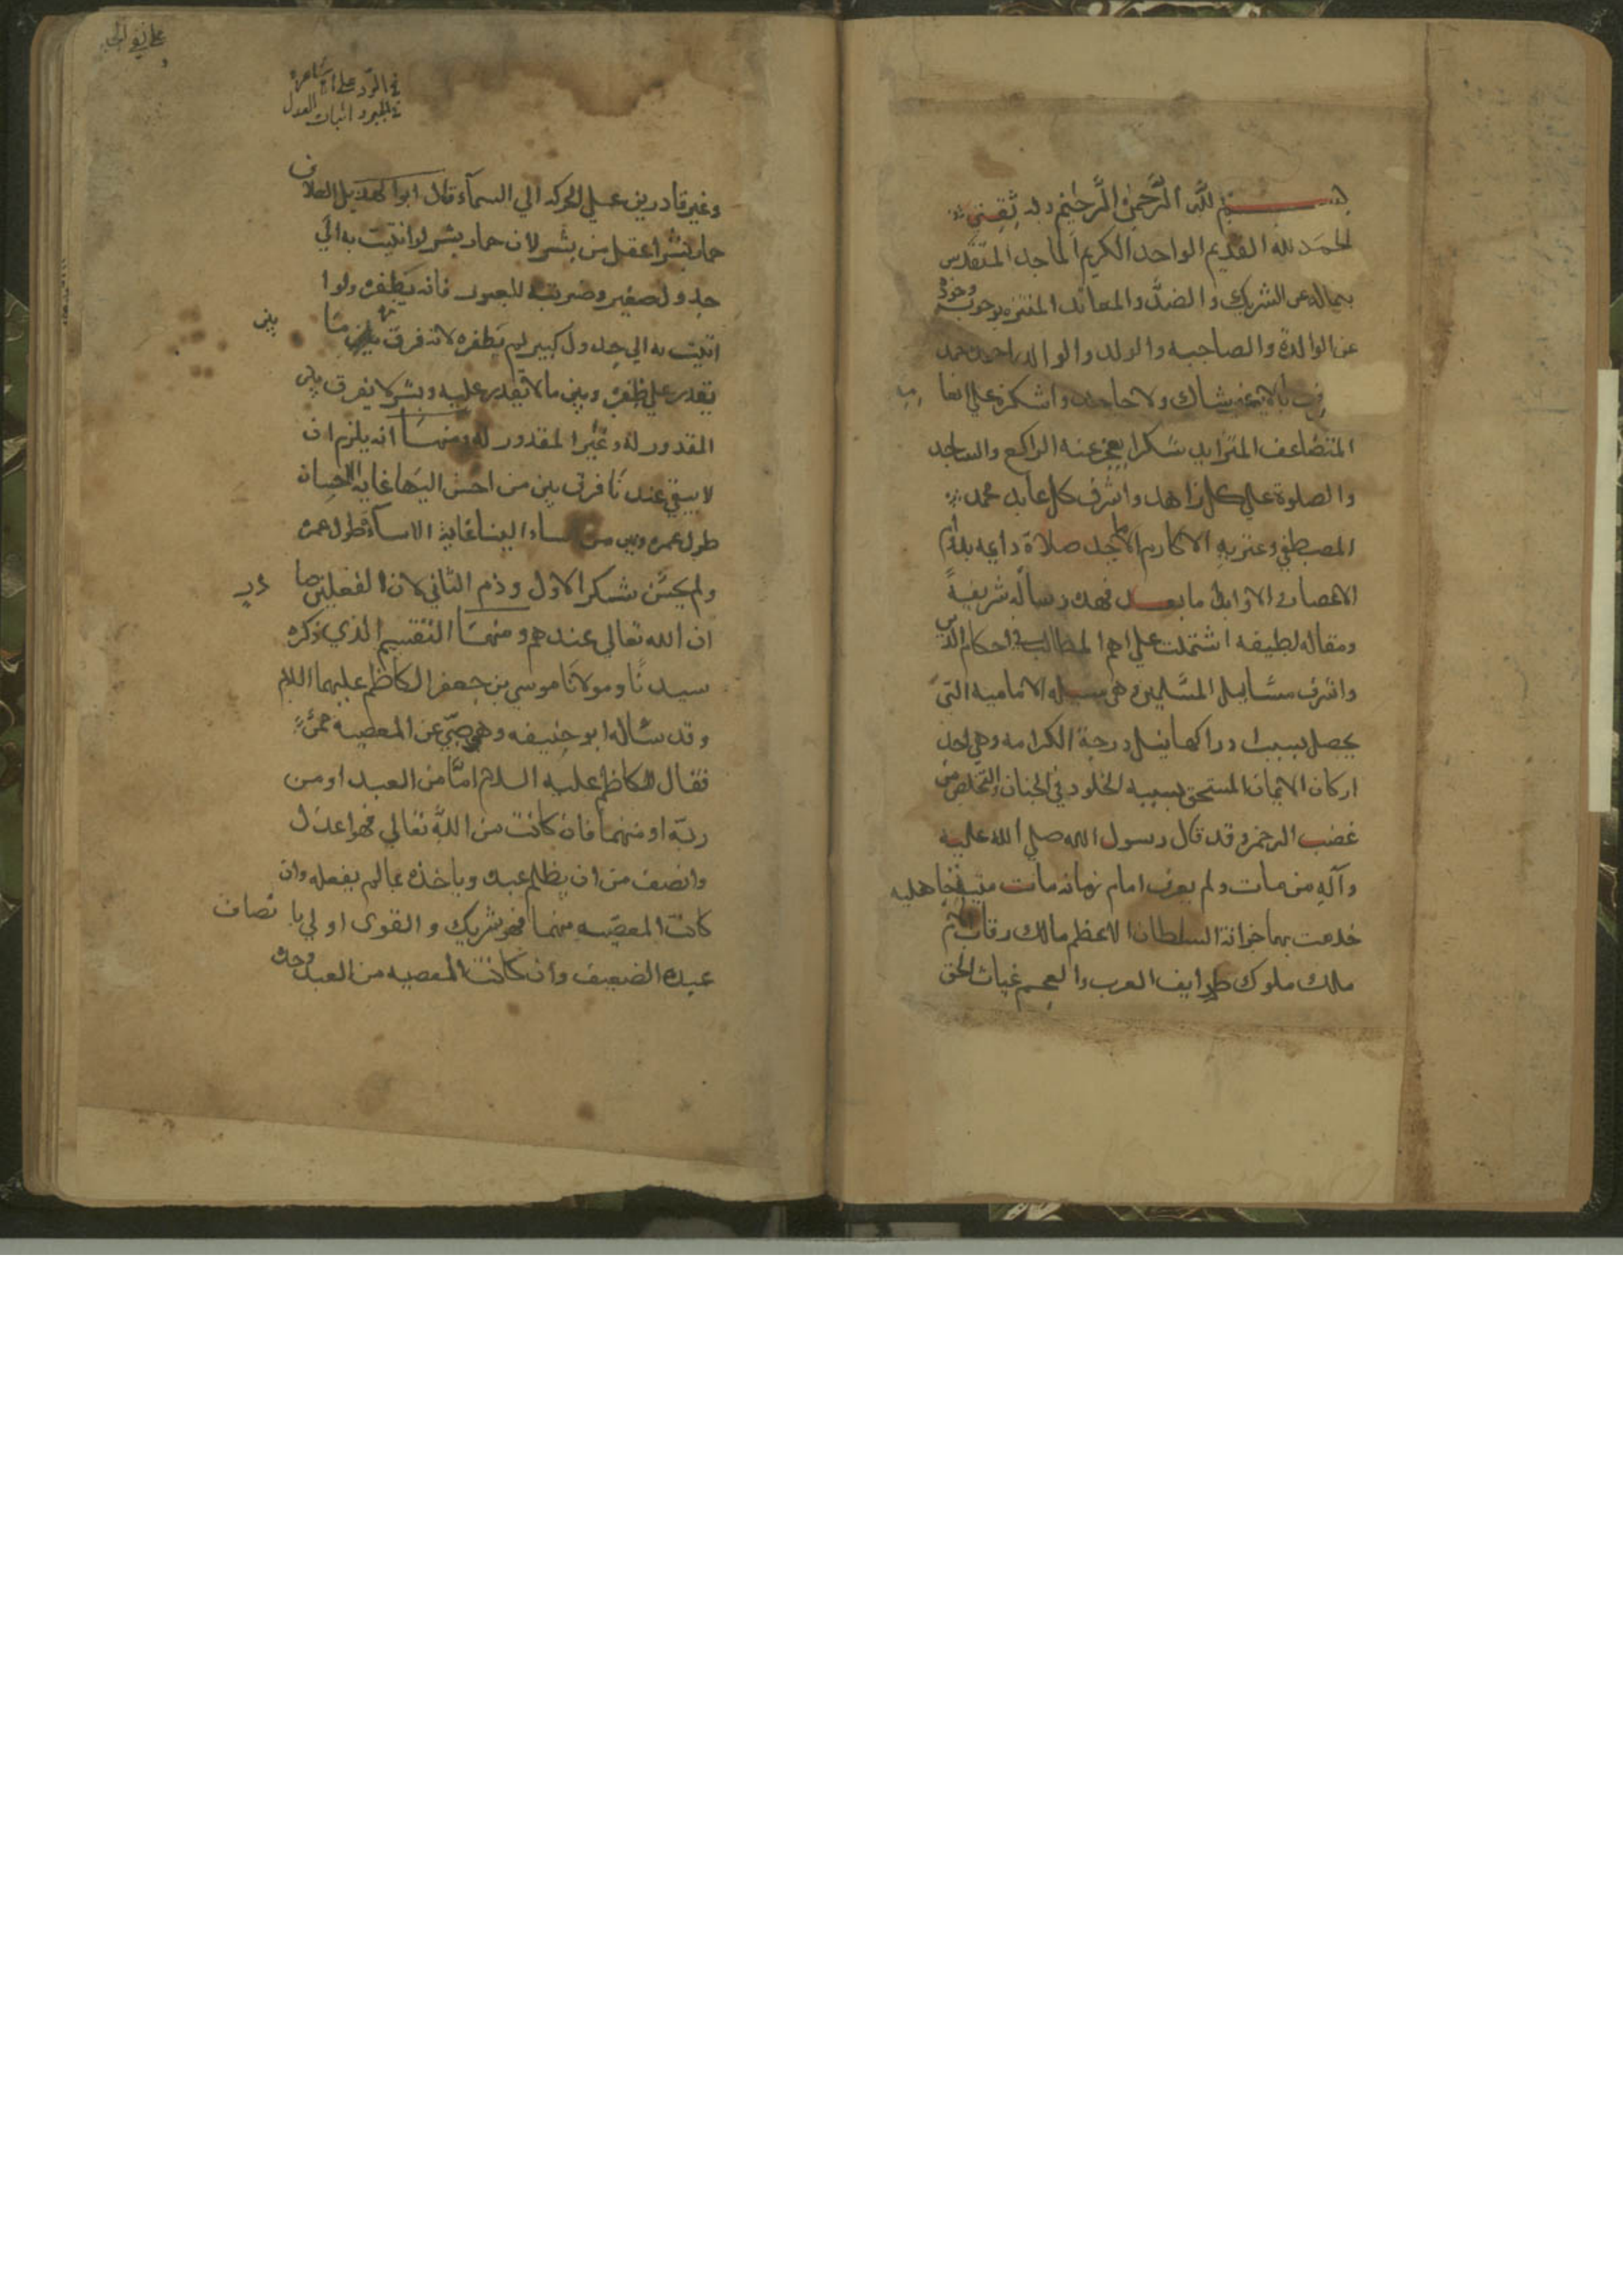 بسم الله الرحمن الرحيم وبه ثقتي
الحمد لله القديم الواحد الكريم الماجد المتقدس
بكماله عن الشريك والضد والمعاند المتنزه بوجوب وجوده
عن الوالدة والصاحبه والولد والوالد احمده حمد
بالايمنه شاك ولا جاحد واشكره علي انعا مه
المتضاعف المتزايد شكرا يعجز عنه الراكع والساجد
والصلوة علي كل زاهد واشرف كل عابد محمد
المصطفي وعترته الاكارم الاماجد صلاة دايمه بدوام
الاعصار والاوابد اما بعد فهذه رساله شريفة
ومقاله لطيفه اشتملت علي اهم المطالب في احكام الدين
واشرف مسايل المسلمين وهي مسله الامامية التي
يحصل بسبب ادراكها نيل درجة الكرامه وهي احد
اركان الايمان المستحق بسببه الخلود في الجنان والتخلص من
غضب الرحمن وقد قال رسول الله صلي الله عليه
وآله من مات ولم يعرف امام زمانه مات ميتة جاهليه
خدمت بها خزانة السلطان الاعظم مالك رقاب الامم
ملك ملوك طوايف العرب والعجم غياث الحق
في الرد على الاشاعرة
في الجبر و اثبات العدل
وغير قادرين علي الحركه الي السمآء قال ابوا لهذيل العلاف
حمار بشر اعقل من بشر لان حمار بشر لو اتيت به الي
جدول صغير وضربته للعبور فانه يطفره ولو ا
اتيت به الي جدول كبير لم يطفره لانه فرق بين ما
بين
يقدر علي طفره وبين ما لا يقدر عليه وبشر لا يفرق بين
المقدور له وغير المقدور له ومنهـا انه يلزم ان
لا يبقي عندنا فرق بين من احسن الينا غاية الاحسان
طول عمره وبين من اساء الينا غاية الاسآءة طول عمره
ولم يحسن شكر الاول وذم الثاني لان الفعلين صا دران
ان الله تعالي عندهم ومنهـا التقسيم الذي ذكره
سيدنا ومولانا موسي بن جعفر الكاظم عليهما السلام
وقد ساله ابو حنيفه وهو صبي عن المعصيه ممن
فقال الكاظم عليه السلام اما من العبد او من
ربه او منهما فان كانت من الله تعالي فهو اعدل
وانصف من ان يظلم عبده وياخذه بما لم يفعله وان
كانت المعصيه منهما فهو شريك والقوى اولي با نصاف
عبده الضعيف وان كانت المعصيه من العبد وحده